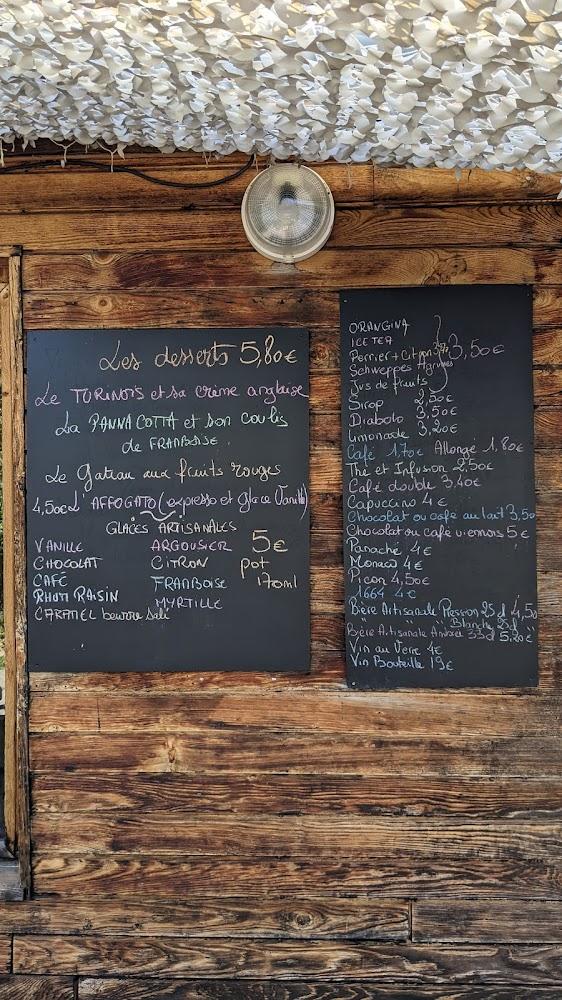 Les desserts 5,80€
Le TURINOIS et sa crème anglaise
La PANNA COTTA et son coulis
de FRAMBOISE.
Le Gateau aux fruits rouges
4,50€ L'AFFOGATO (expresso et glace Vanille)
GLACES ARTISANALES
VANILLE ARGOUSIER 5€
CHOCOLAT CITRON pot
CAFÉ FRAMBOISE 170ml
RHUM RAISIN MYRTILLE
CARAMEL beurre salé
ORANGINA
ICE TEA
Perrier + Citron 3,50€
Schweppes Agrumes
Jus de fruits
Sirop 2,50€
Diabolo 3,50€
limonade 3,20€
Café 1,70€ Allongé 1,80€
Thé et Infusion 2,50€
Café double 3,40€
Capuccino 4€
Chocolat ou café au lait 3,50
Chocolat ou café viennois 5€
Panaché 4€
Monaco 4€
Picon 4,50€
1664 4€
Bière Artisanale Pression 25 d 4,50
" " Blanche 25d "
Bière Artisanale Ambrée 33d 5,20€
Vin au Verre 4€
Vin Bouteille 19€